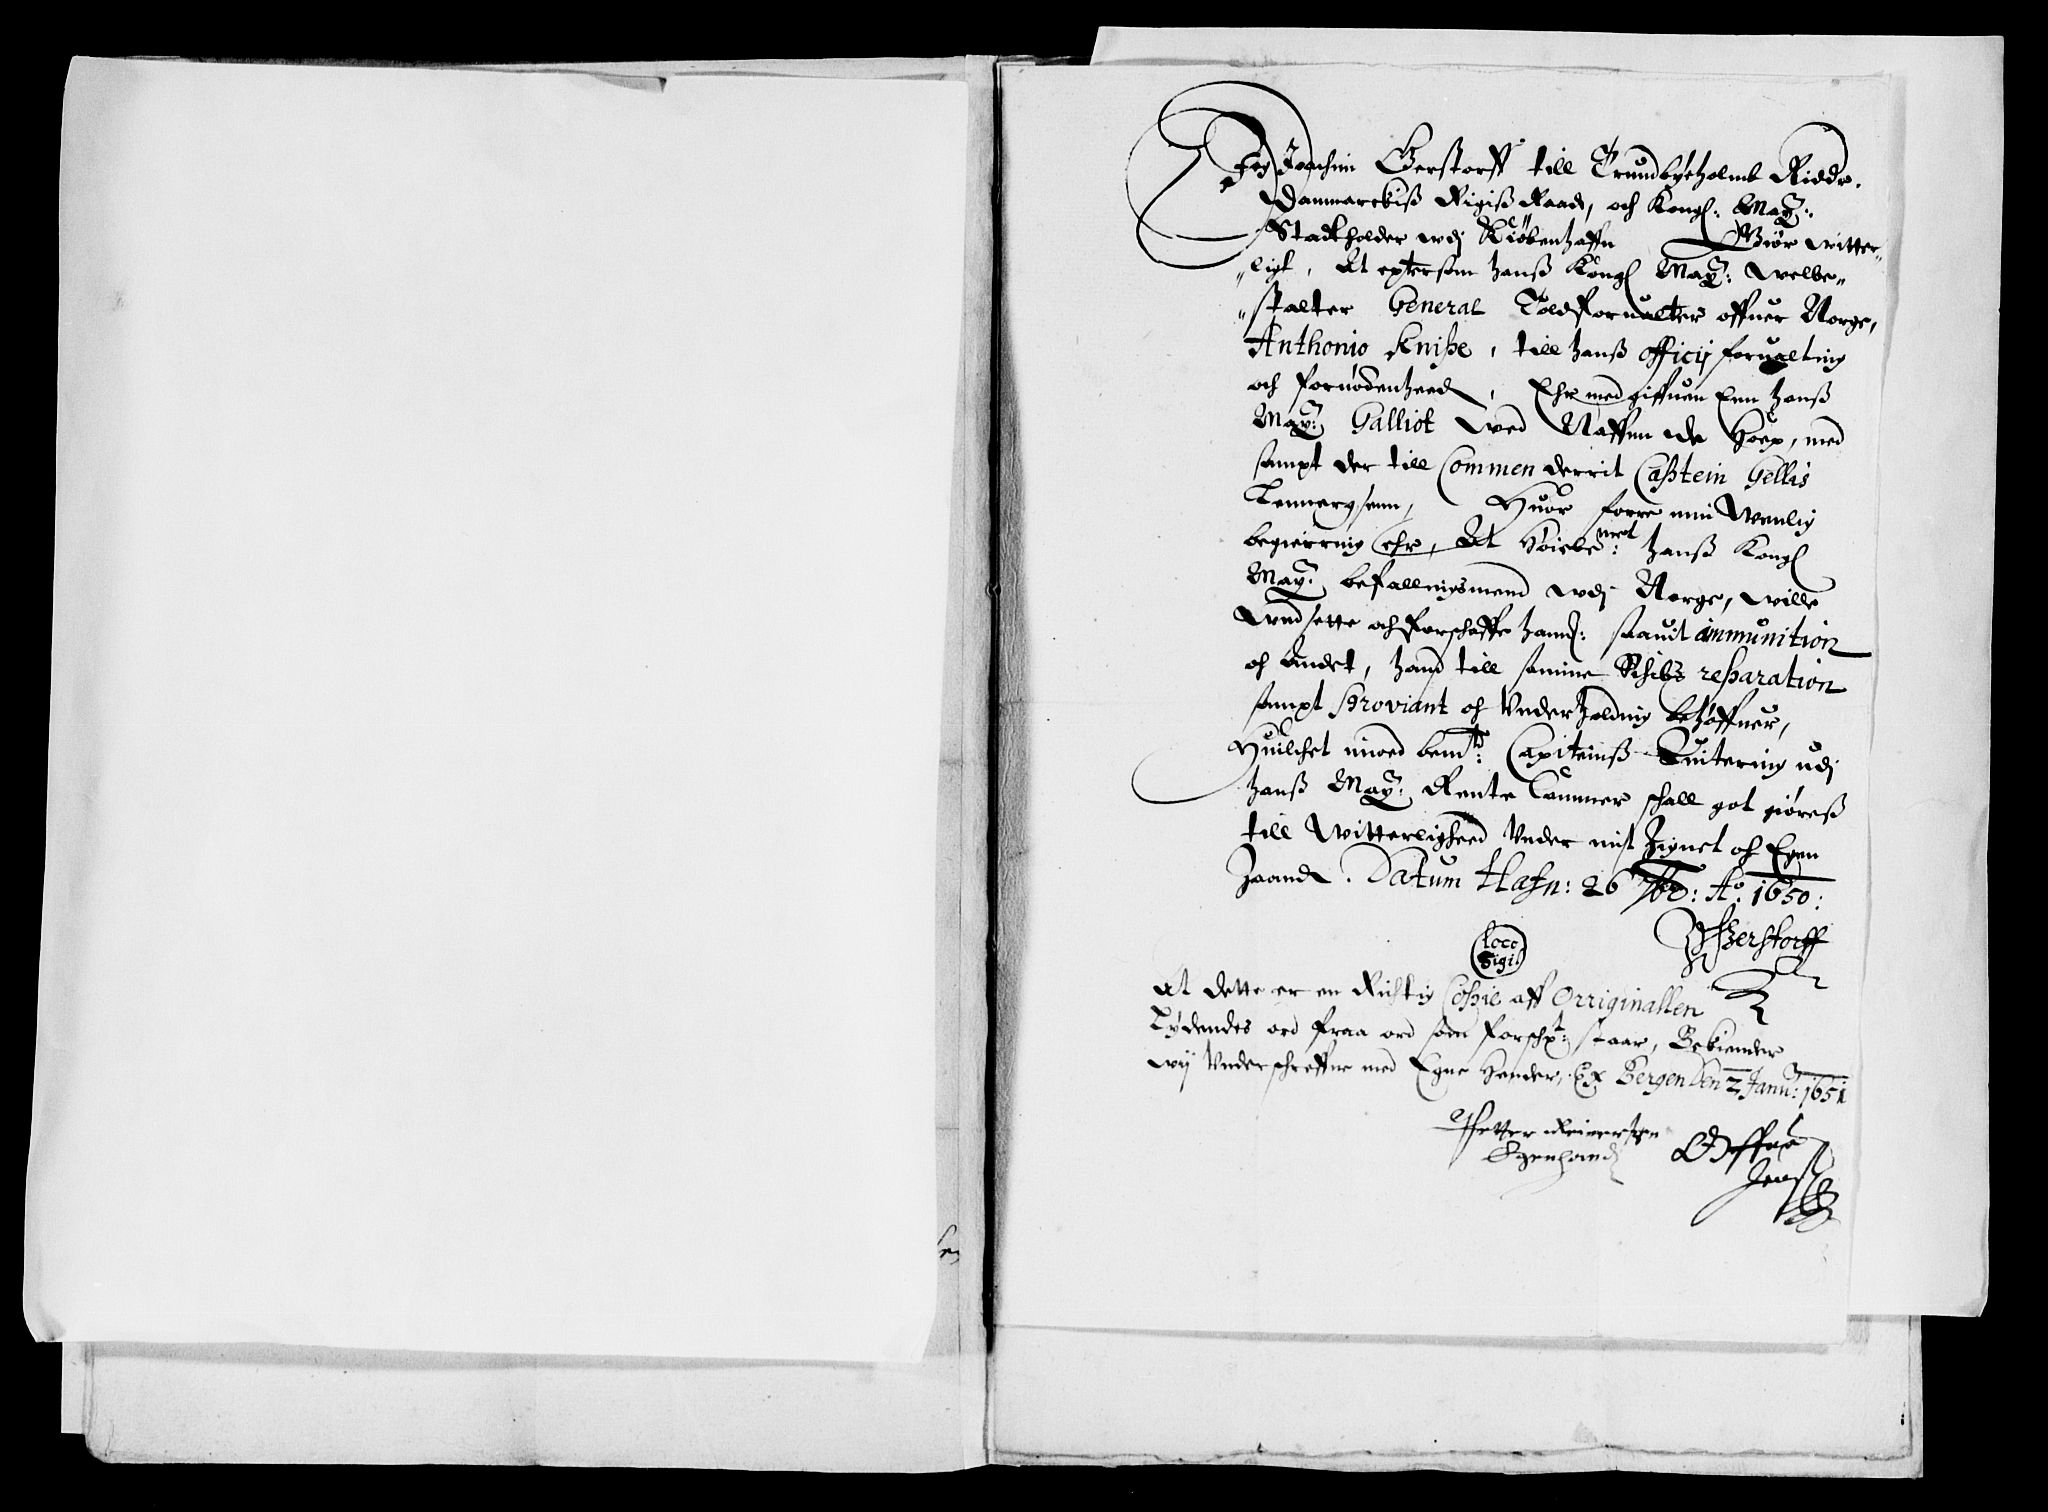 Jeg Joachim Gerstorff till Trundbyeholmb Ridder.
Danmarckiß Rigiß Raad, och Kongl: May:
Stadtholder vdj Kiøbenhaffn Giør witter„
„ligt, At epttersom hanß Kongl May: velbe„
„stalter General Toldforualter offuer Norge,
Anthonio Knipe, till hanß officij forualting
och fornødenheed, Ehr medgiffuen Enn hanß
May: Galliot wed Naffnn de Hoep, med
sampt der till Commenderrit Capitein Gellis
Lennerssenn, Huor forre min Venlig
begierring ehr, At Høiebe:melt hanß Kongl
May: befallingsmend vdj Norge, wille
Vndsette och forschaffe hannd: saauit ammunition
och Andet, hand till samme Schibs reparation
sampt Proviant och Vnderholdnig behøffuer,
Huilchet imoed bemte: Capiteinß Quitering udj
hanß May: Rente Cammer schall got giøreß
till Witterligheed Vnder mit Zignet och Egen
haand. Datum Hafn: 26 7br: Ao: 1650:
Loco
Sigil
JGerstorff
At dette er en Richtig Copie aff Orriginallen
Lydendes ord fraa ord som forschr: staar, Bekiender
wij Vnderschreffne med Egne Hender, Ex Bergen Den 2 Janu: 1651
Petter Reinertsen
Egenhand
Jens